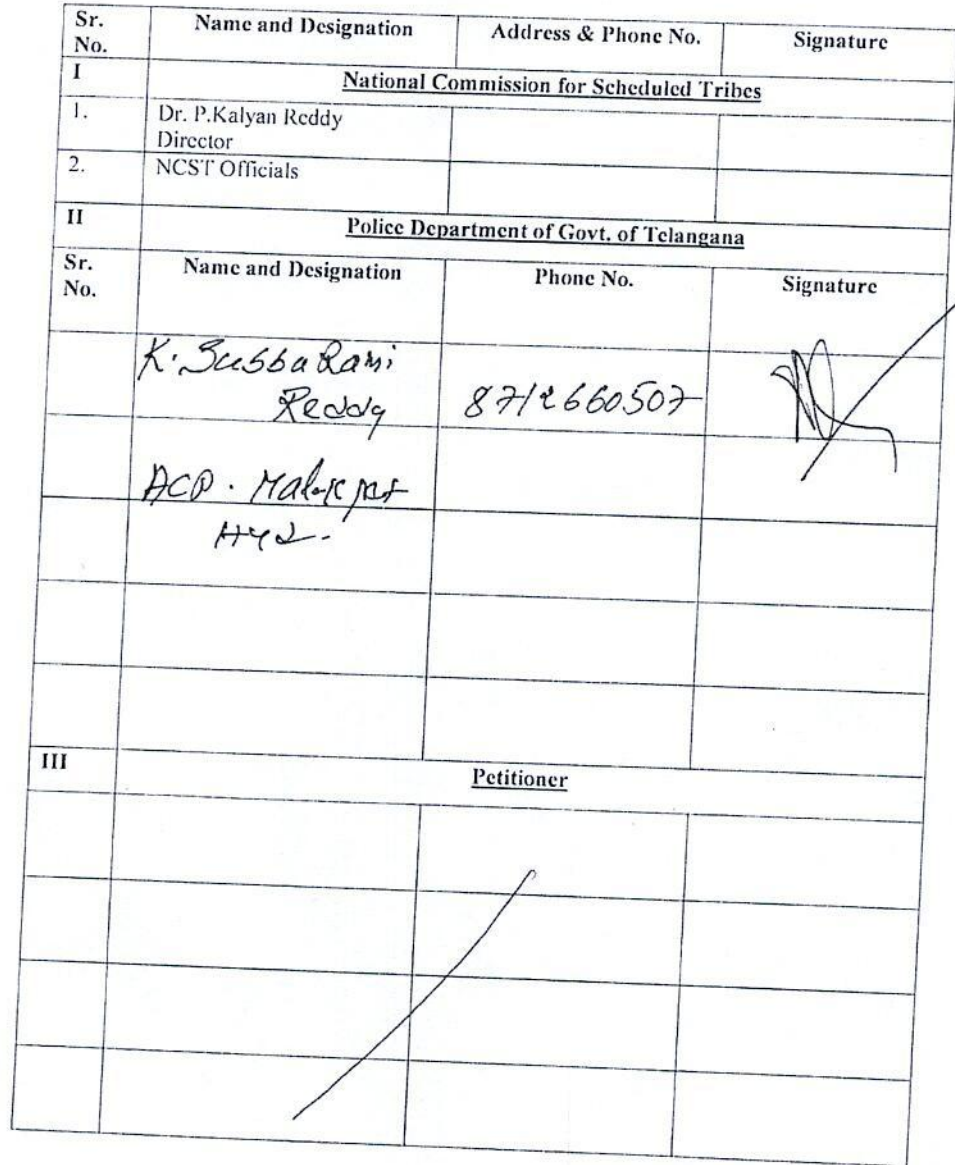 Sr. No. Name and Designation Address & Phone No. Signature
I National Commission for Scheduled Tribes
1. Dr. P.Kalyan Reddy
Director
2. NCST Officials
II Police Department of Govt. of Telangana
Sr. No. Name and Designation Phone No. Signature
K. Subba Rami
Reddy 8712660507
ACP. Malakpet
Hyd.
III Petitioner